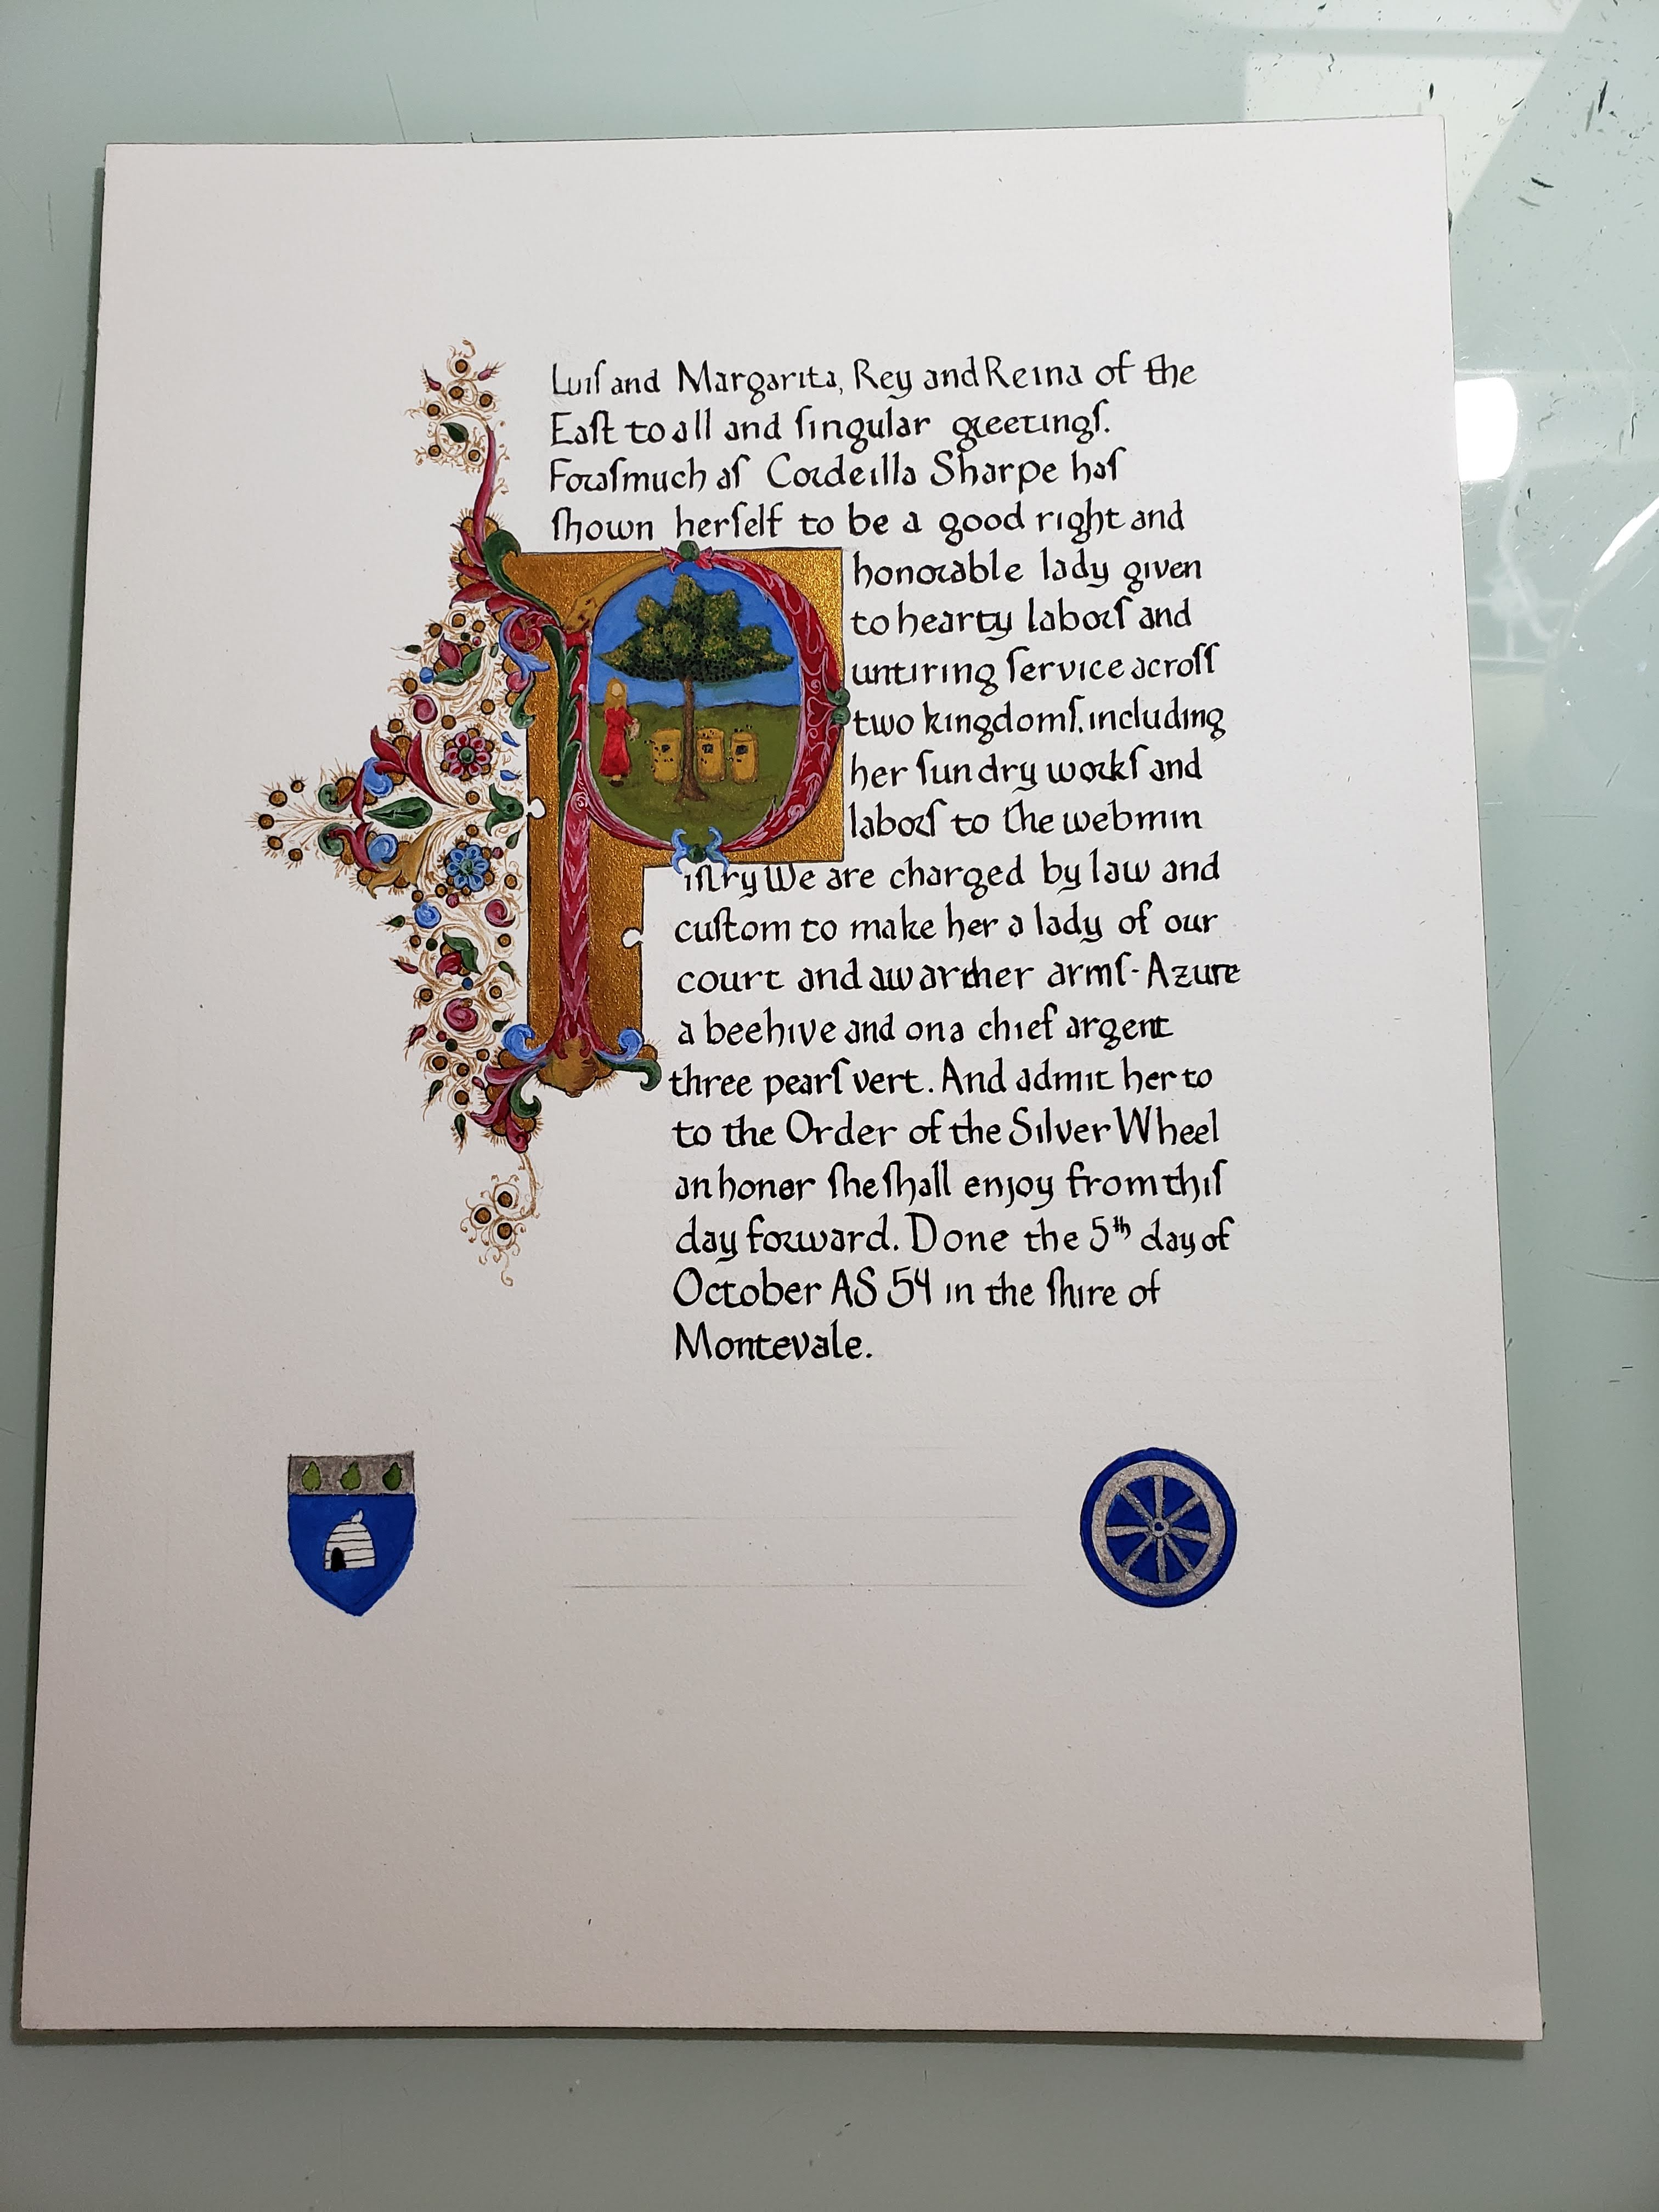 Luiſ and Margarita, Rey and Reina of the
Eaſt to all and ſingular greetingſ.
Foraſmuch aſ Cordeilla Sharpe haſ
ſhown herſelf to be a good right and
honorable lady given
to hearty laborſ and
untiring ſervice acroſſ
two kingdomſ, including
her ſundry workſ and
laborſ to the webmin
iſtry We are charged by law and
cuſtom to make her a lady of our
court and awarther armſ - Azure
a beehive and on a chief argent
three pearſ vert. And admit her to
to the Order of the Silver Wheel
an honor ſhe ſhall enjoy from thiſ
day forward. Done the 5th day of
October AS 54 in the ſhire of
Montevale.